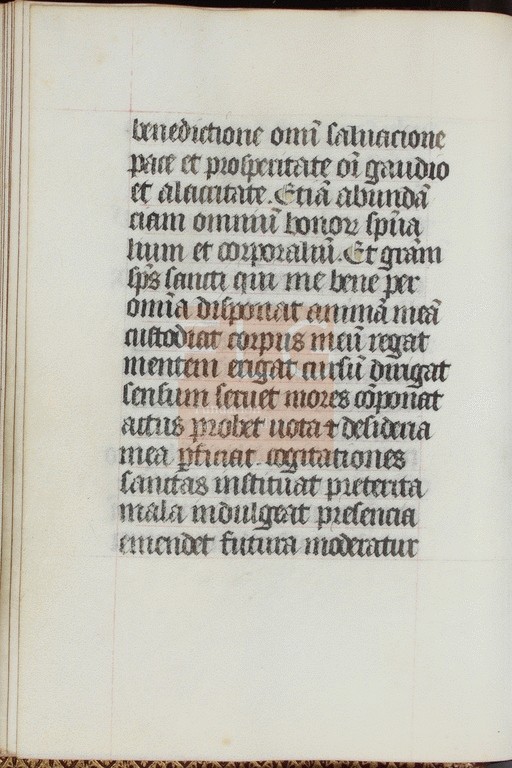 benedictione omī saluacione
pace et prosperitate oī gaudio
et alacritate. Etiā abundā
ciam omniū bonoꝝ spūa
lium et corporaliū. Et grām
sp̄s sancti qui me bene per
omīa disponat animā meā
custodiat corpus meū regat
mentem erigat cursū dirigat
sensum seruet mores cōponat
actus probet uota ⁊ desideria
mea ꝑficiat. cogitationes
sanctas instituat preterita
mala indulgeat presencia
emendet futura moderatur